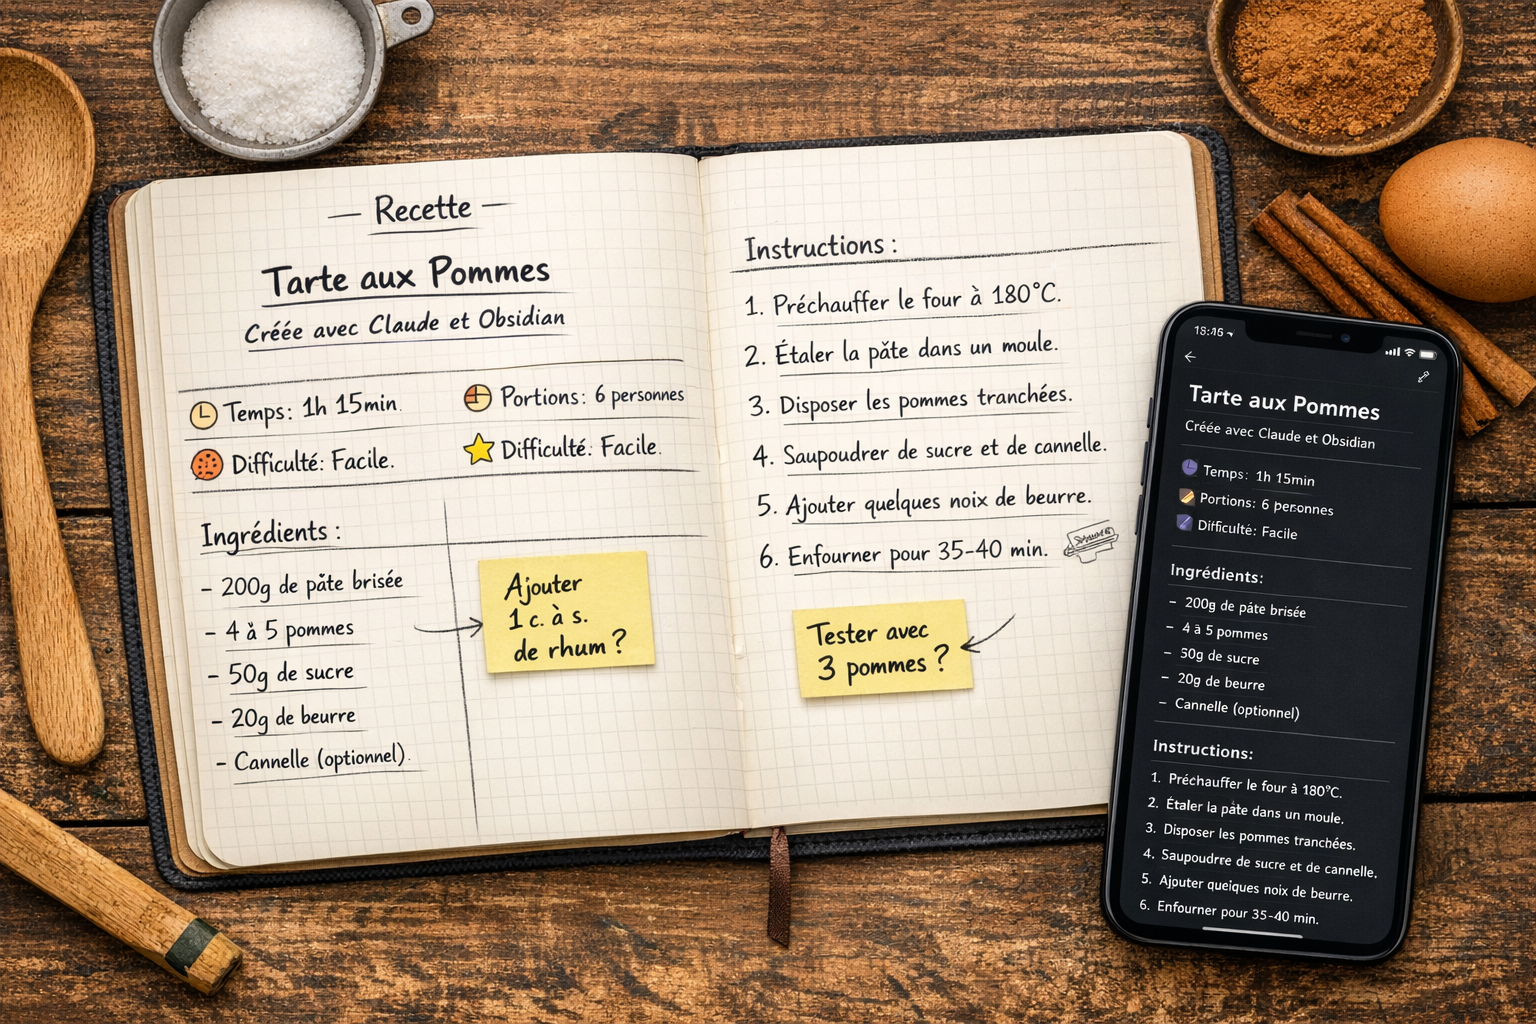 — Recette —
Tarte aux Pommes
Créée avec Claude et Obsidian
Temps: 1h 15min.
Portions: 6 personnes
Difficulté: Facile.
Difficulté: Facile.
Ingrédients :
- 200g de pâte brisée
- 4 à 5 pommes
- 50g de sucre
- 20g de beurre
- Cannelle (optionnel).
Ajouter
1 c. à s.
de rhum ?
Instructions :
1. Préchauffer le four à 180°C.
2. Étaler la pâte dans un moule.
3. Disposer les pommes tranchées.
4. Saupoudrer de sucre et de cannelle.
5. Ajouter quelques noix de beurre.
6. Enfourner pour 35-40 min.
Tester avec
3 pommes ?
Tarte aux Pommes
Créée avec Claude et Obsidian
Temps: 1h 15min
Portions: 6 personnes
Difficulté: Facile
Ingrédients:
- 200g de pâte brisée
- 4 à 5 pommes
- 50g de sucre
- 20g de beurre
- Cannelle (optionnel)
Instructions:
1. Préchauffer le four à 180°C.
2. Étaler la pâte dans un moule.
3. Disposer les pommes tranchées.
4. Saupoudrre de sucre et de cannelle.
5. Ajouter queiques noix de beurre.
6. Enfourner pour 35-40 min.